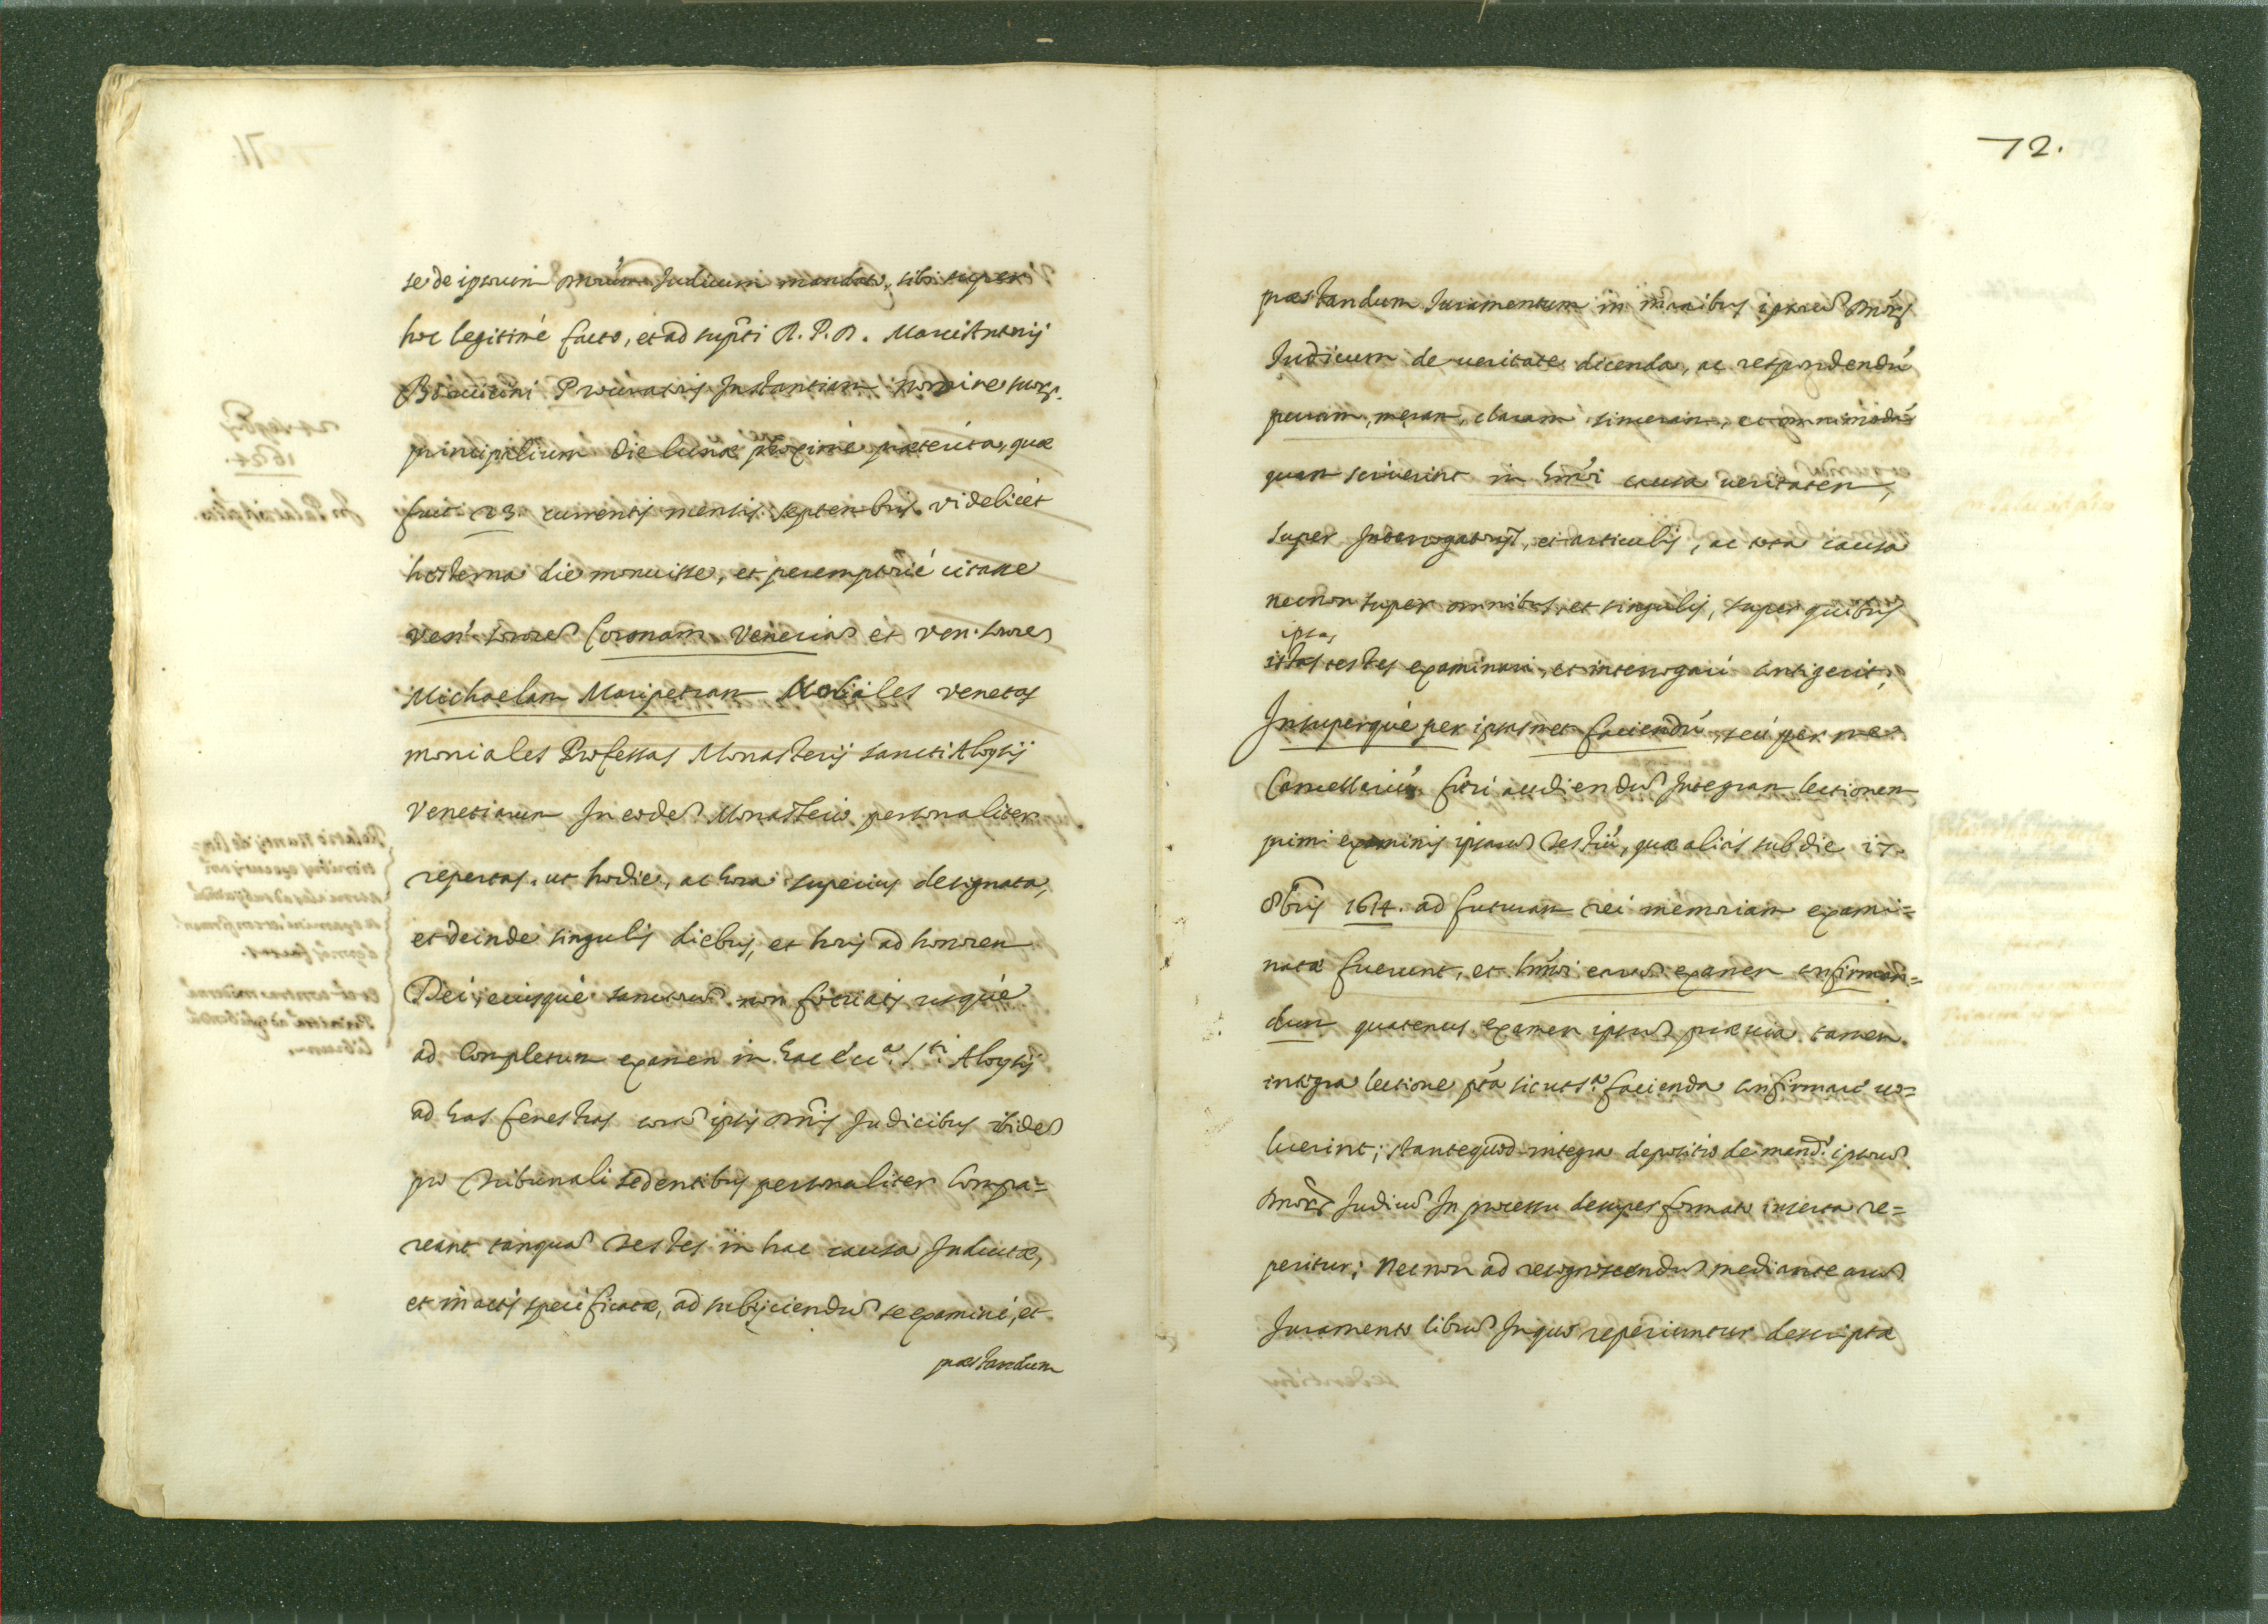 se de ipsorum Dnorũm Judicum mandato, sibi super
hoc legitimé facto, et ad supti R. P. D. Marci Antonij
Bonicini Procuratoris Instantiam nomine suorz.
principalium die lunae proximé praeterita, quae
fuit 23 currentis mensis septembris videlicét
hodierna die monuisse, et peremptorié citasse
Ven. sorore Coronam Veneria et ven. sorore
Michaelam Maripetram Mobiales venetas
moniales Professas Monasterij sancti Aloysij
Venetiarum In eode Monasterio personaliter
repertas. ut hodie, ac hora superius designata,
et deinde singulis diebus, et horis ad honorem
Dei, eiusqué sanctoru non feriatis usqué
ad Completum examen in hac écc.a S.ti Aloysij
ad has fenestras cora ipsis Dnis Judicibus ibide
pro Tribunali sedentibus personaliter Compa=
reant tanqua Testes in hac causa Inductae,
et in actis specificatae, ad subijciendu se examini, et
praestandum
72.
praestandum Juramentum in manibus ipsoru Dnorz
Judicum de ueritate dicenda, ac respondendũ
puram, meram, claram sinceram, et omnimodã
quam sciuerint in hmõi causa ueritatem,
super Interrogatorijs, et articulis, ac tota causa
necnon super omnibus, et singulis, super quibus
ipsas
istas testes examinari, et interrogari contigerit;
Insuperqué per ipsasmet faciendũ, seú per me
Cancellariũ fieri audiendu Integram lectionem
primi examinis ipsaru Testiũ, quae aliás sub die 17.
8bris 1614. ad futuram rei memoriam exami=
natae fuerunt, et hmõi earu examen confirman=
dum quatenus examen ipsum praeuia tamen
integra lectione pta sicut s.a facienda confirmare uo=
luerint; stantequod integra depositio de mand.o ipsoru
Dnorz Judicu In processu desuper formato inserta re=
peritur; Necnon ad recognoscendu mediante earu
Juramento libru In quo reperiuntur descriptae